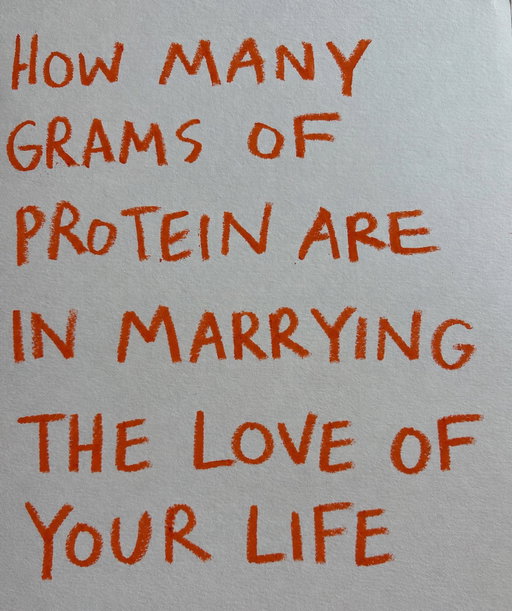 HOW MANY
GRAMS OF
PROTEIN ARE
IN MARRYING
THE LOVE OF
YOUR LIFE